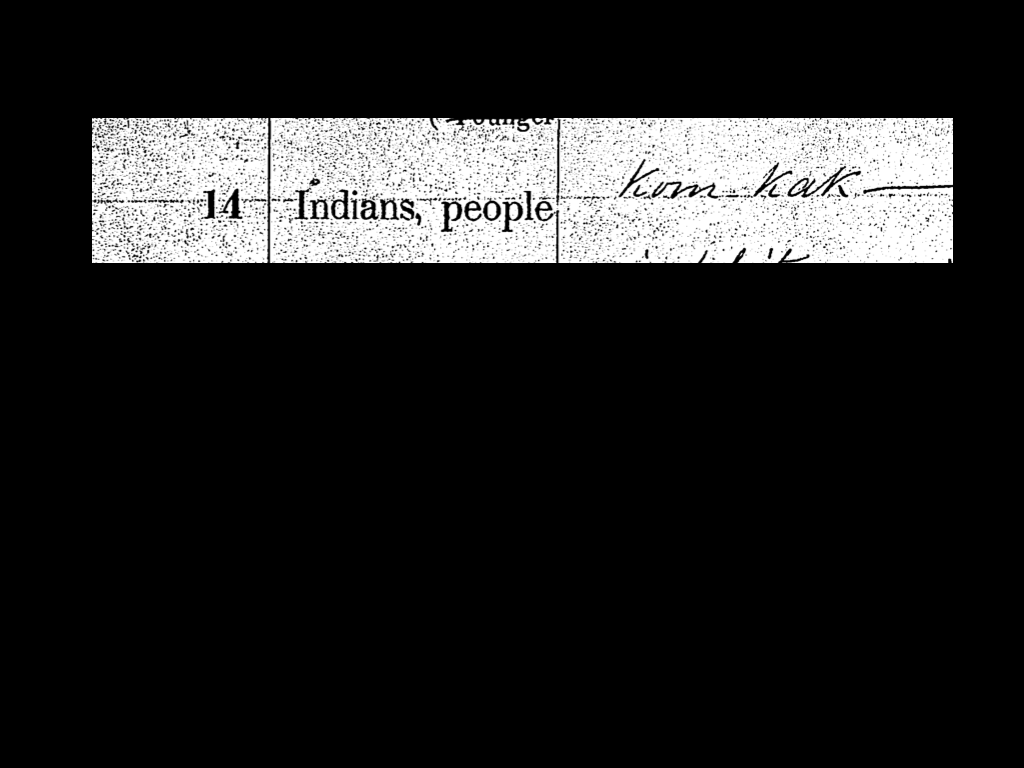 (Younger
14 Indians, people kom kak —